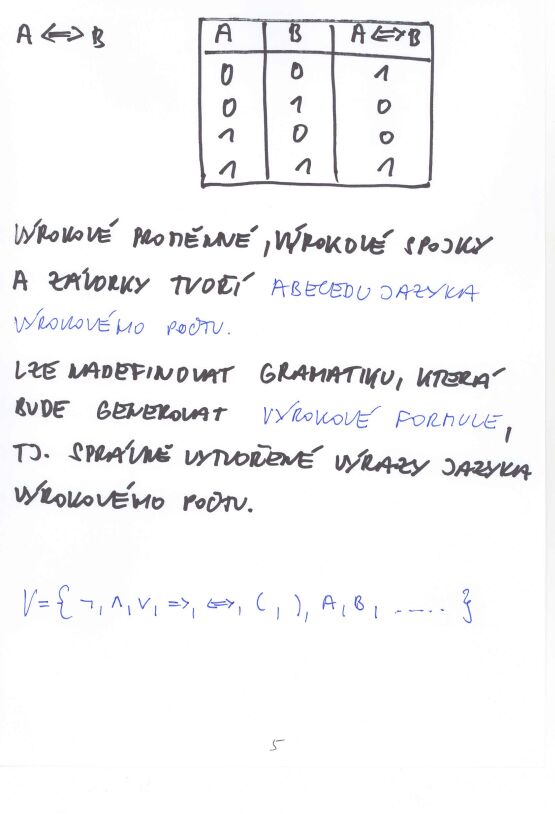 A ⟺ B
A B A⟺B
0 0 1
0 1 0
1 0 0
1 1 1
VÝROKOVÉ PROMĚNNÉ, VÝROKOVÉ SPOJKY
A ZÁVORKY TVOŘÍ ABECEDU JAZYKA
VÝROKOVÉHO POČTU.
LZE NADEFINOVAT GRAMATIKU, KTERÁ
BUDE GENEROVAT VÝROKOVÉ FORMULE,
TJ. SPRÁVNĚ VYTVOŘENÉ VÝRAZY JAZYKA
VÝROKOVÉHO POČTU.
V = { ¬, ∧, ∨, ⇒, ⟺, (, ), A, B, ..... }
5